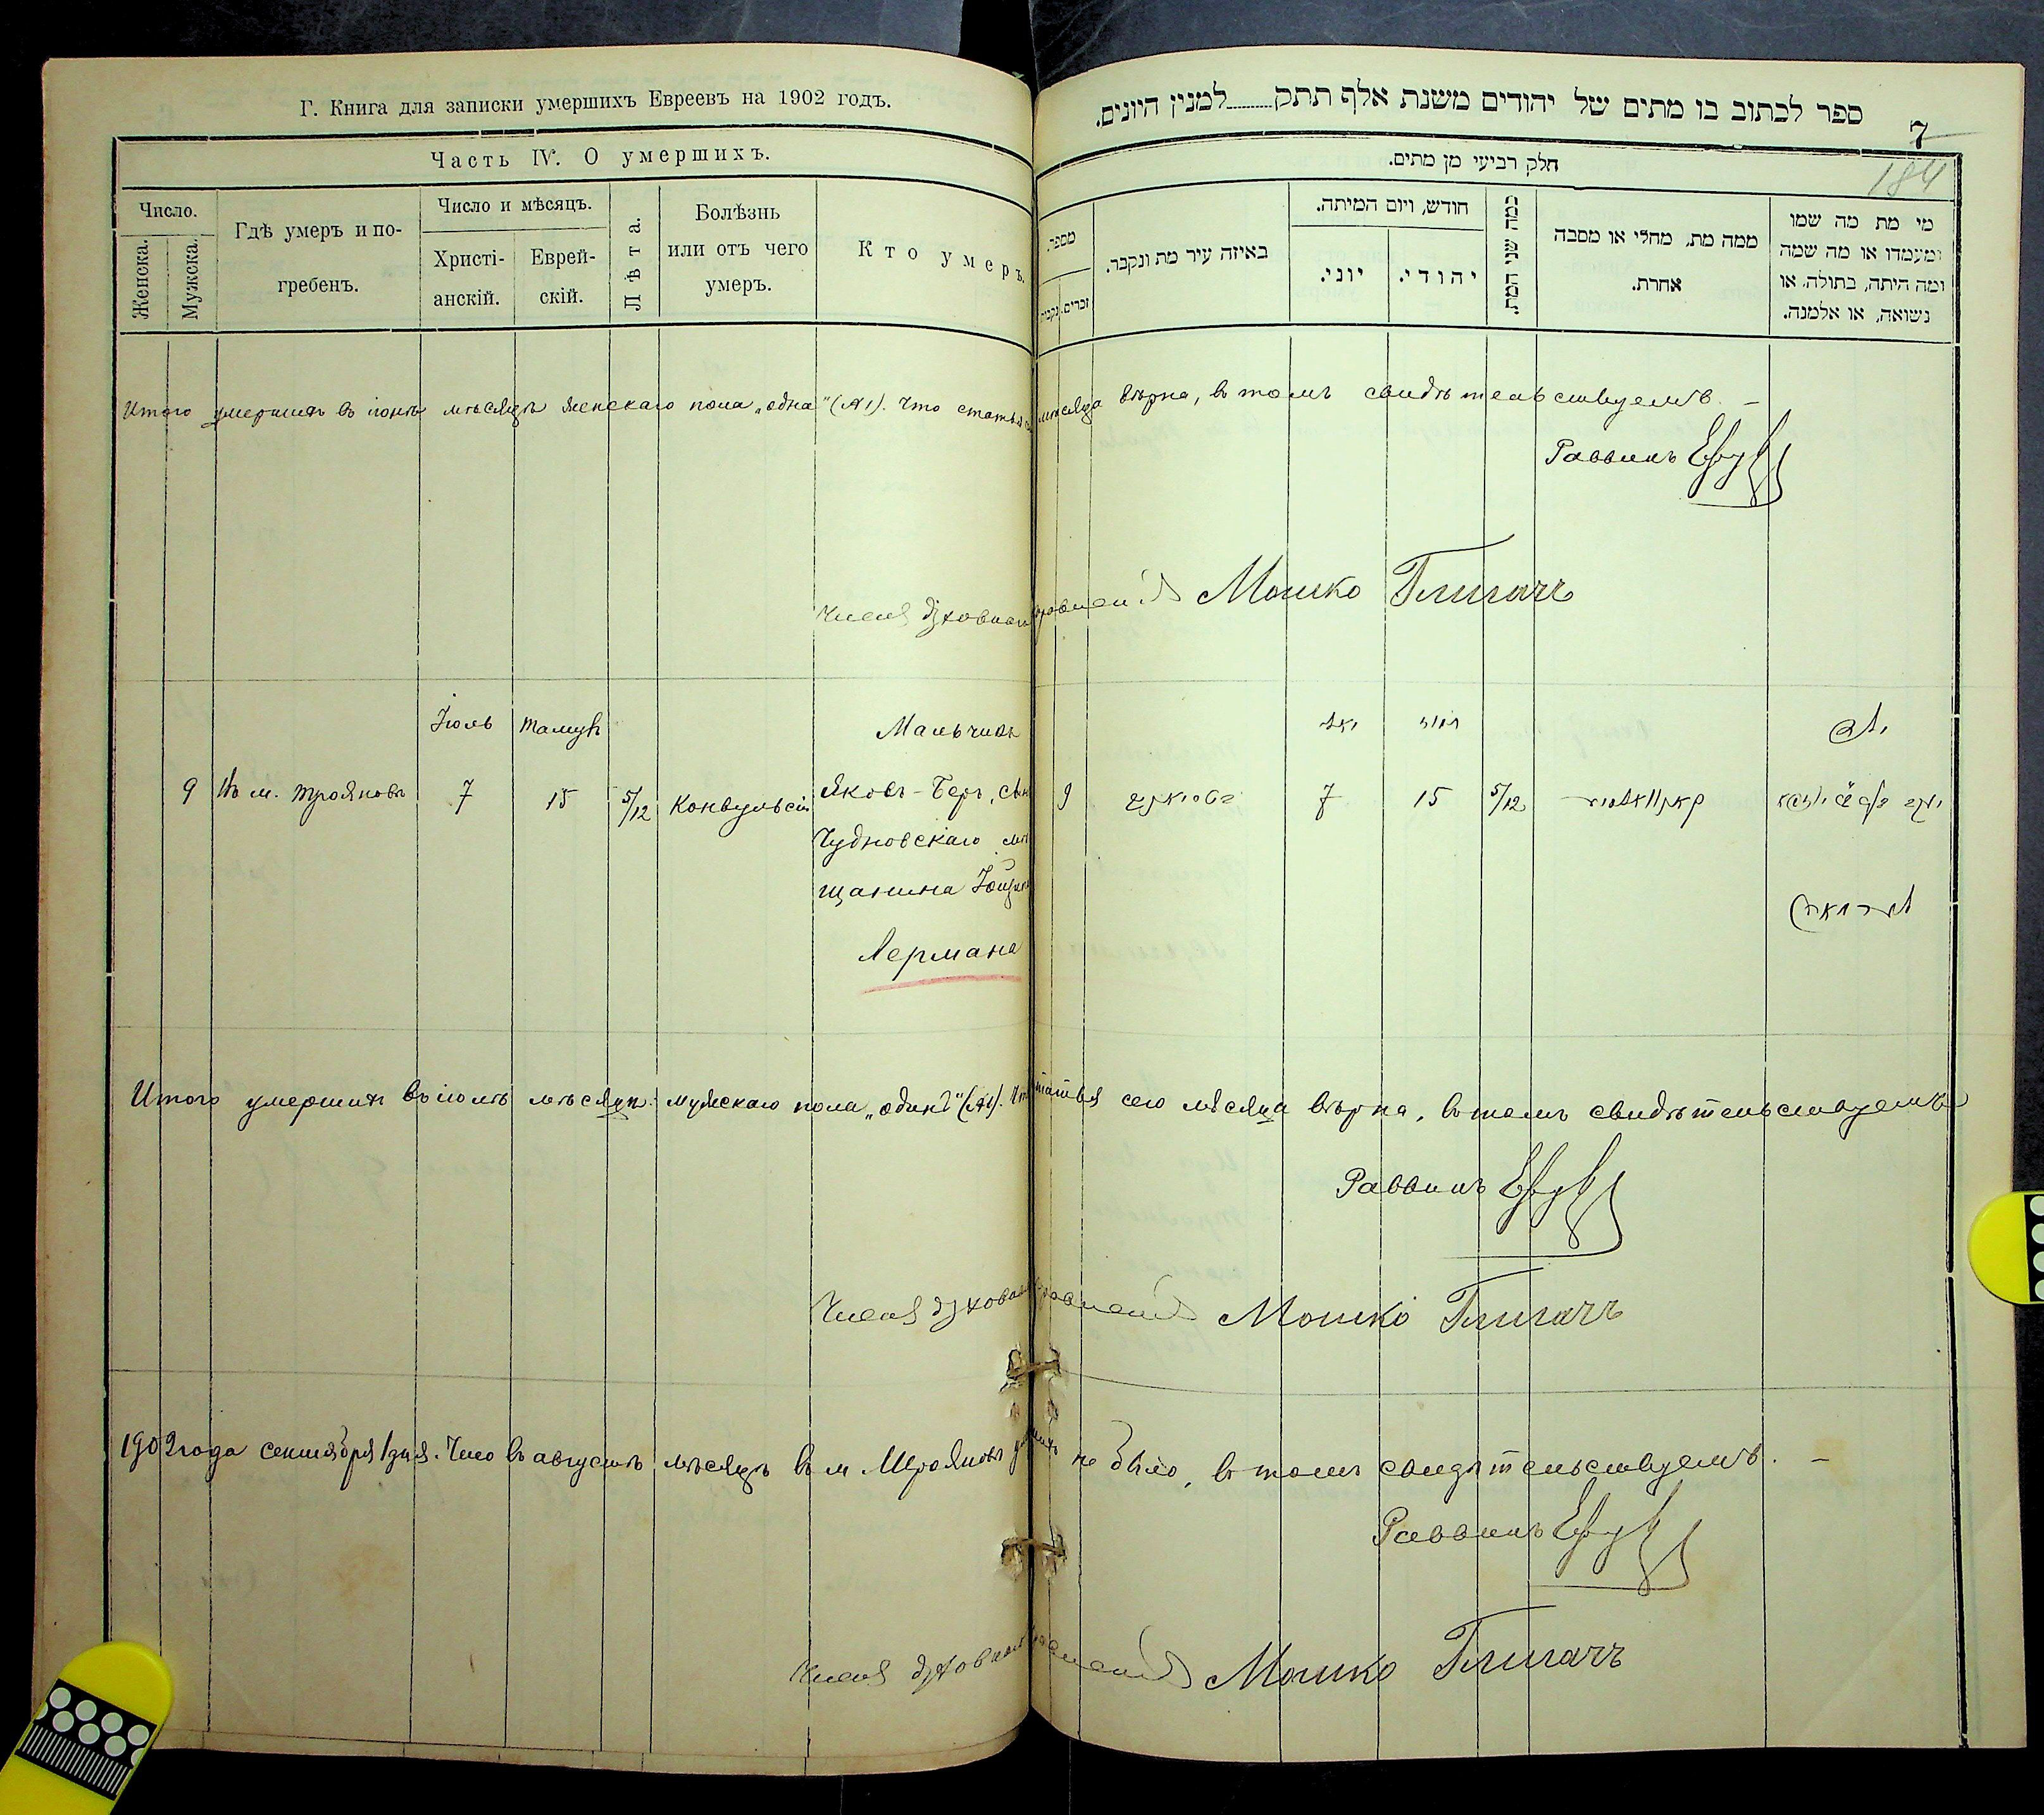 Г. Книга для записки умершихъ Евреевъ на 1902 годъ.
Часть IV. О умершихъ.
Число.
Женска.
Мужска.
Гдѣ умеръ и по-
гребенъ.
Число и мѣсяцъ.
Христі-
анскій.
Еврей-
скій.
Лѣта.
Болѣзнь
или отъ чего
умеръ.
Кто умеръ.
ספר לכתוב בו מתים של יהודים משנת אלף תתק למנין היונים.
7
184
חלק רביעי מן מתים.
מספר.
זכרים.
נקבות
באיזה עיר מת ונקבר.
חודש, ויום המיתה.
יוני.
יהודי.
כמה שני המת.
ממה מת, מחלי או מסבה
אחרת.
מי מת מה שמו
ומעמדו או מה שמה
ומה היתה, בתולה, או
נשואה, או אלמנה.
Итого умершихъ въ іюнѣ мѣсяцѣ женскаго пола „одна" (№1). Что статья мѣсяца вѣрна, въ томъ свидѣтельствуемъ. —
Раввинъ
Членъ духовнаго правленія Мошко
Іюль Тамузъ Мальчикъ
9 Въ м. Трояновѣ 7 15 5/12 Конвульсіи Яковъ-Беръ, сынъ 9 7 15 5/12
Чудновскаго мѣ
щанина
Лермана
Итого умершихъ въ іюлѣ мѣсяцѣ мужскаго пола „одинъ" (№1). Что статья сего мѣсяца вѣрна, въ томъ свидѣтельствуемъ
Раввинъ
Членъ духовнаго правленія Мошко
1902 года сентября 1 дня. Что въ августѣ мѣсяцѣ въ м. Трояновѣ умершихъ не было, въ томъ свидѣтельствуемъ. —
Раввинъ
Членъ духовнаго правленія Мошко